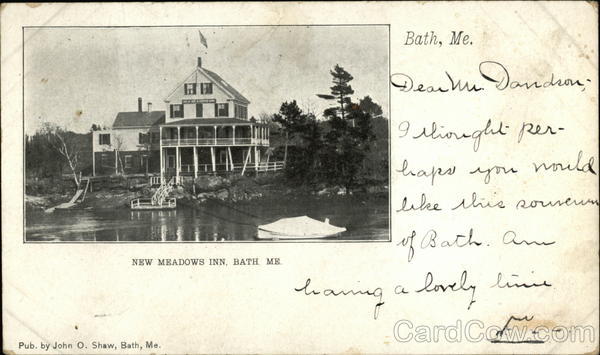 Bath, Me.
Dear Mr. Davidson,
I thought per-
haps you would
like this souvenir
of Bath. Am
having a lovely time
NEW MEADOWS INN, BATH ME.
Pub. by John O. Shaw, Bath, Me.
CardCow.com